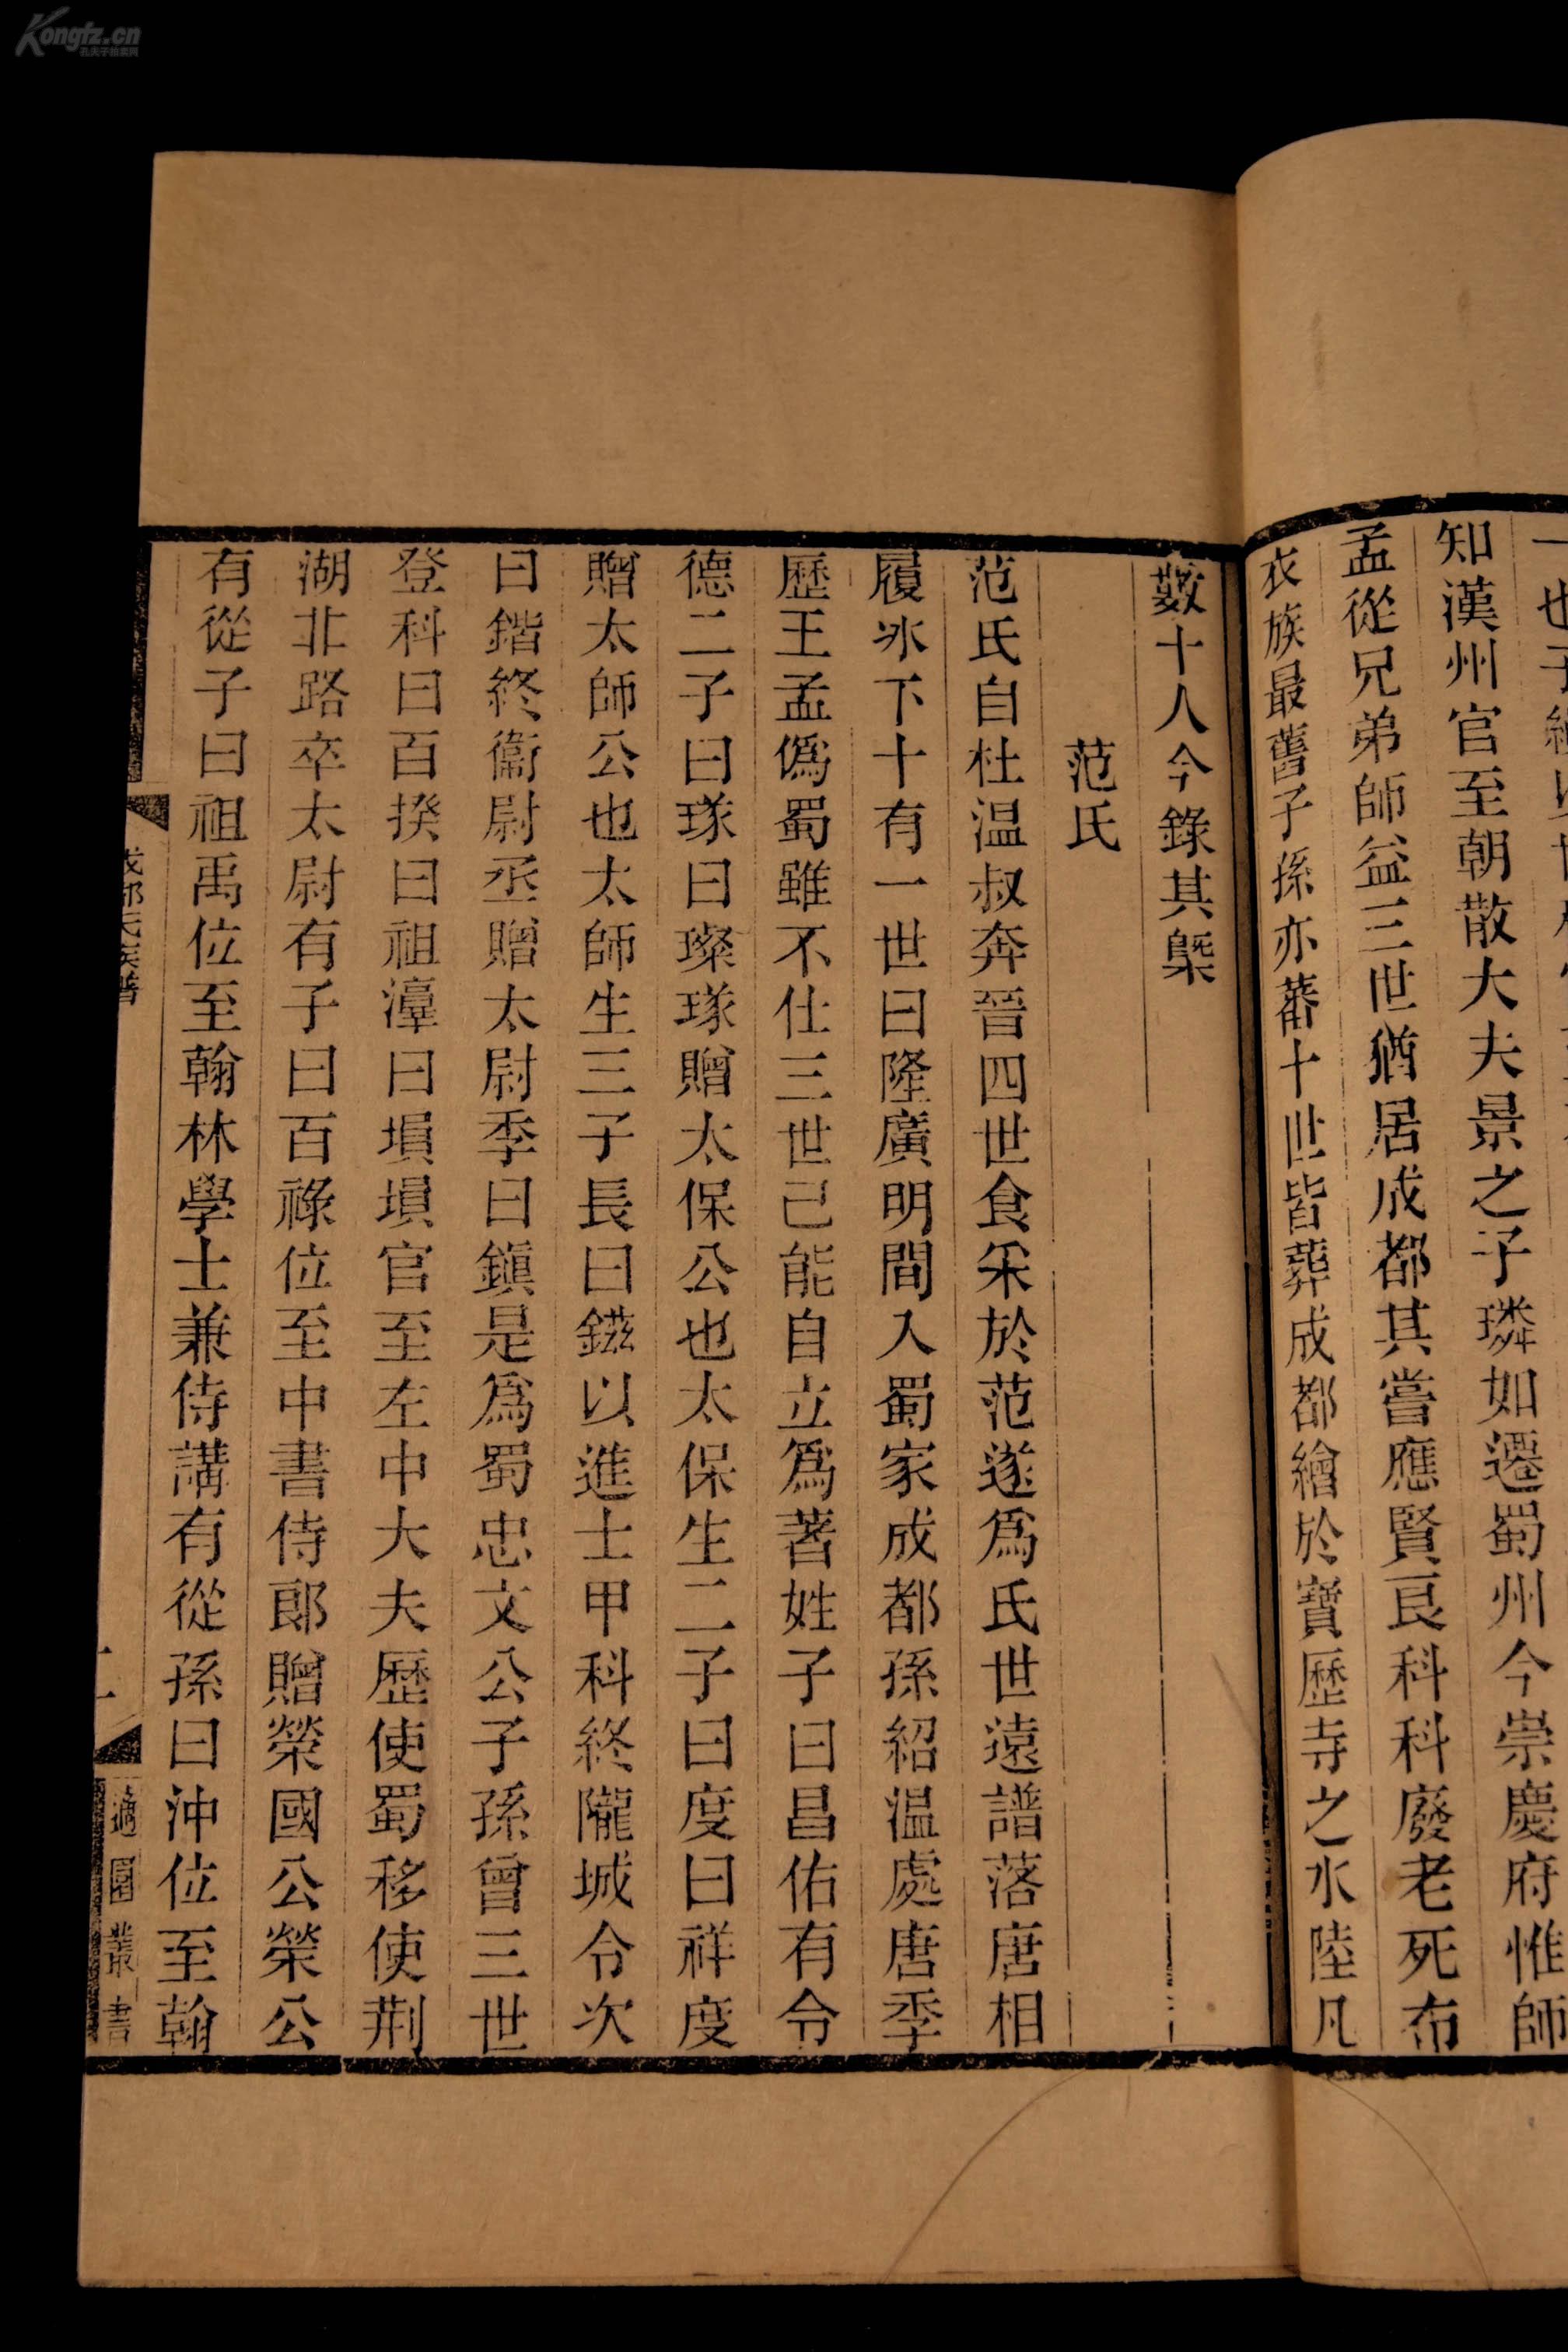 知漢州官至朝散大夫景之子璘如遷蜀州今崇慶府惟師
孟從兄弟師益三世猶居成都其嘗應賢良科科廢老死布
衣族最舊子孫亦蕃十世皆葬成都繪於寶歷寺之水陸凡
數十人今錄其槩
范氏
范氏自杜温叔奔晉四世食采於范遂爲氏世遠譜落唐相
履氷下十有一世曰隆廣明間入蜀家成都孫紹温處唐季
歷王孟僞蜀雖不仕三世己能自立爲著姓子曰昌佑有令
德二子曰璲曰璨璲贈太保公也太保生二子曰度曰祥度
贈太師公也太師生三子長曰鎡以進士甲科終隴城令次
曰鍇終衞尉丞贈太尉季曰鎭是爲蜀忠文公子孫曾三世
登科曰百揆曰祖𤀹曰塤塤官至左中大夫歷使蜀移使荆
湖北路卒太尉有子曰百祿位至中書侍郎贈榮國公榮公
有從子曰祖禹位至翰林學士兼侍講有從孫曰沖位至翰
成都氏族譜
二
適園叢書
Kongfz.cn
孔夫子旧书网